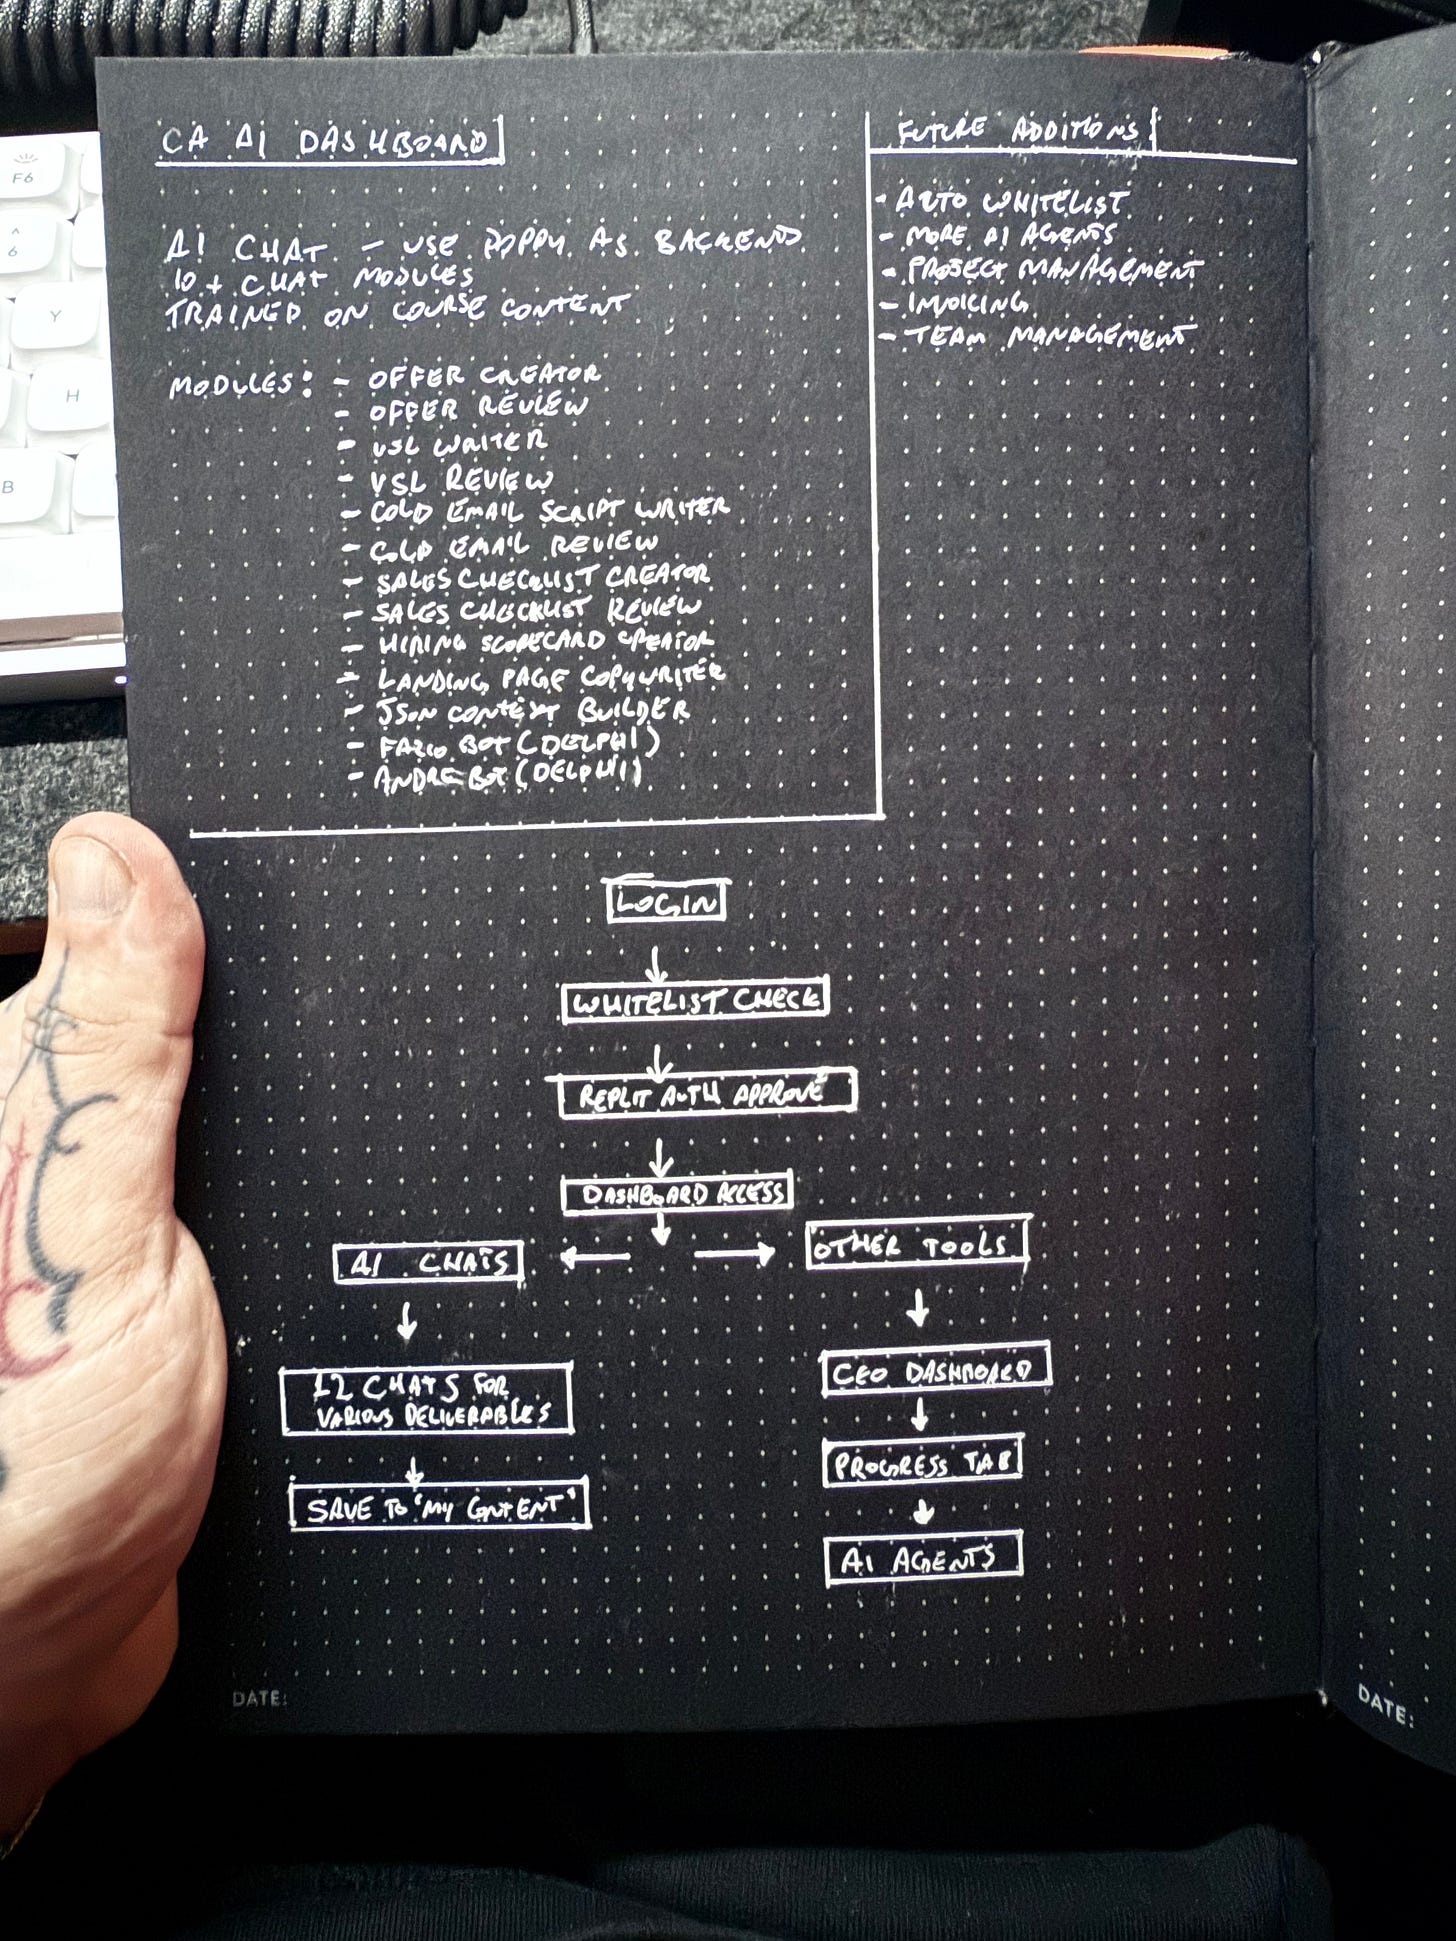 CA AI DASHBOARD
AI CHAT - USE POPPY AS BACKEND
10+ CHAT MODULES
TRAINED ON COURSE CONTENT
MODULES: - OFFER CREATOR
- OFFER REVIEW
- VSL WRITER
- VSL REVIEW
- COLD EMAIL SCRIPT WRITER
- COLD EMAIL REVIEW
- SALES CHECKLIST CREATOR
- SALES CHECKLIST REVIEW
- HIRING SCORECARD CREATOR
- LANDING PAGE COPYWRITER
- JSON CONTEXT BUILDER
- FAZIO BOT (DELPHI)
- ANDRE BOT (DELPHI)
FUTURE ADDITIONS
- AUTO WHITELIST
- MORE AI AGENTS
- PROJECT MANAGEMENT
- INVOICING
- TEAM MANAGEMENT
LOGIN
WHITELIST CHECK
REPLIT AUTH APPROVE
DASHBOARD ACCESS
AI CHATS
OTHER TOOLS
12 CHATS FOR
VARIOUS DELIVERABLES
SAVE TO 'MY CONTENT'
CEO DASHBOARD
PROGRESS TAB
AI AGENTS
DATE:
DATE:
F6
^
6
Y
H
B